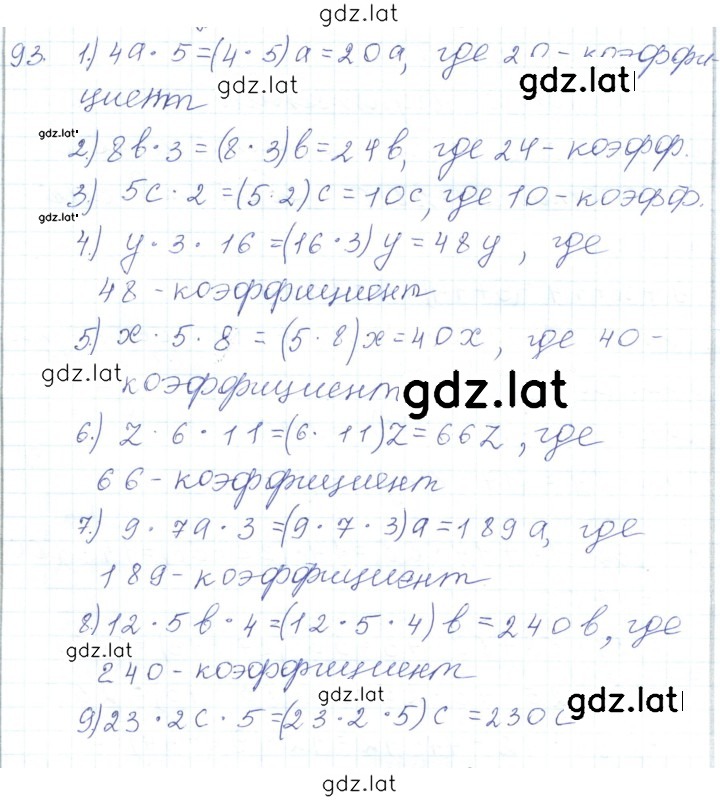 gdz.lat
93. 1.) 4a · 5 = (4 · 5) a = 20a, где 20 - коэффи-
циент gdz.lat gdz.lat
gdz.lat
2.) 8b · 3 = (8 · 3) b = 24b, где 24 - коэфф.
3.) 5c · 2 = (5 · 2) c = 10c, где 10 - коэфф.
gdz.lat
4.) y · 3 · 16 = (16 · 3) y = 48y, где
48 - коэффициент
5.) x · 5 · 8 = (5 · 8) x = 40x, где 40 -
gdz.lat коэффициент gdz.lat
6.) z · 6 · 11 = (6 · 11) z = 66z, где
66 - коэффициент
7.) 9 · 7a · 3 = (9 · 7 · 3) a = 189a, где
189 - коэффициент
8.) 12 · 5b · 4 = (12 · 5 · 4) b = 240b, где
gdz.lat
240 - коэффициент
gdz.lat gdz.lat
9) 23 · 2c · 5 = (23 · 2 · 5) c = 230c
gdz.lat